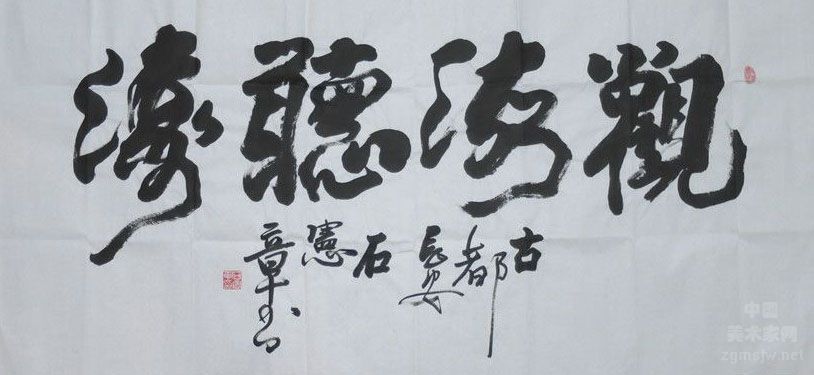 觀海聽濤
古都長安石憲章書
中國
美术家网
zgmsjw.net